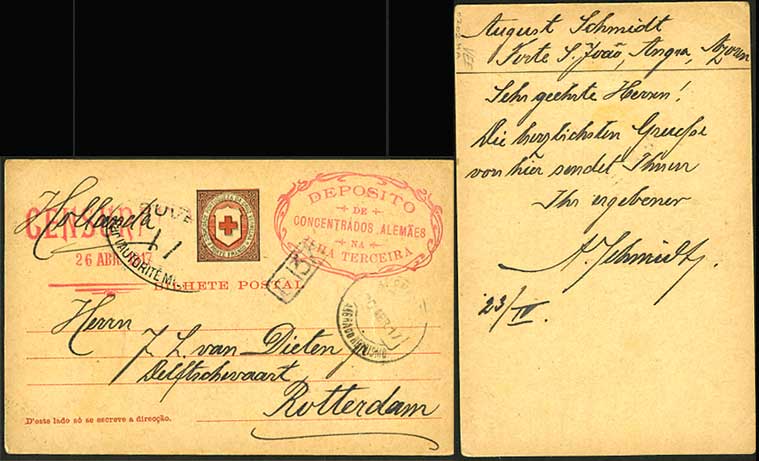 Hollanda
CENSURA
26 ABR 1917
OUVE
L'AUTORITÉ MI
DEPOSITO
DE
CONCENTRADOS ALEMÃES
NA
ILHA TERCEIRA
BILHETE POSTAL
Herrn
J. L. van Dieten jr
Delftschevaart
Rotterdam
D'este lado só se escreve a direcção.
August Schmidt
Forte S. João, Angra, Azoren
Sehr geehrte Herren!
Die herzlichsten Gruesse
von hier sendet Ihnen
Ihr ergebener
A. Schmidt
23/IV.